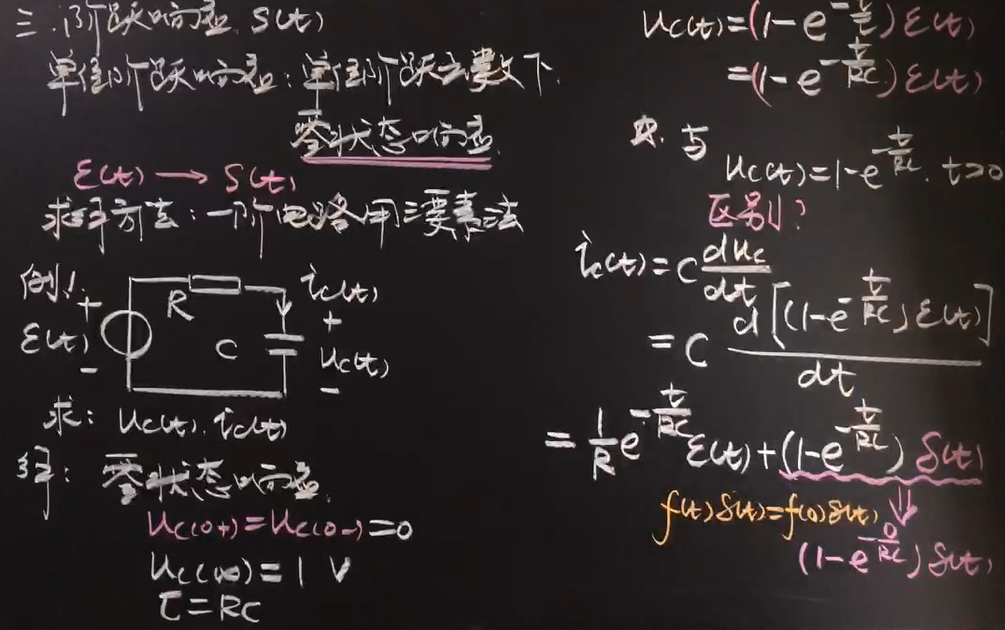 三.阶跃响应 S(t)
单位阶跃响应:单位阶跃函数下
零状态响应
ε(t) → S(t)
求解方法:一阶电路用三要素法
例1.
+
ε(t)
-
R
C
ic(t)
+
uc(t)
-
求: uc(t). ic(t)
解: 零状态响应
uc(0+)=uc(0-)=0
uc(∞)=1 V
τ=RC
uc(t)=(1-e^{-t/τ})ε(t)
=(1-e^{-t/RC})ε(t)
与
uc(t)=1-e^{-t/RC}. t>0
区别?
ic(t)=C duc/dt
=C d[(1-e^{-t/RC})ε(t)]/dt
=1/R e^{-t/RC} ε(t)+(1-e^{-t/RC})δ(t)
f(t)δ(t)=f(0)δ(t) ⇓
(1-e^{-0/RC})δ(t)